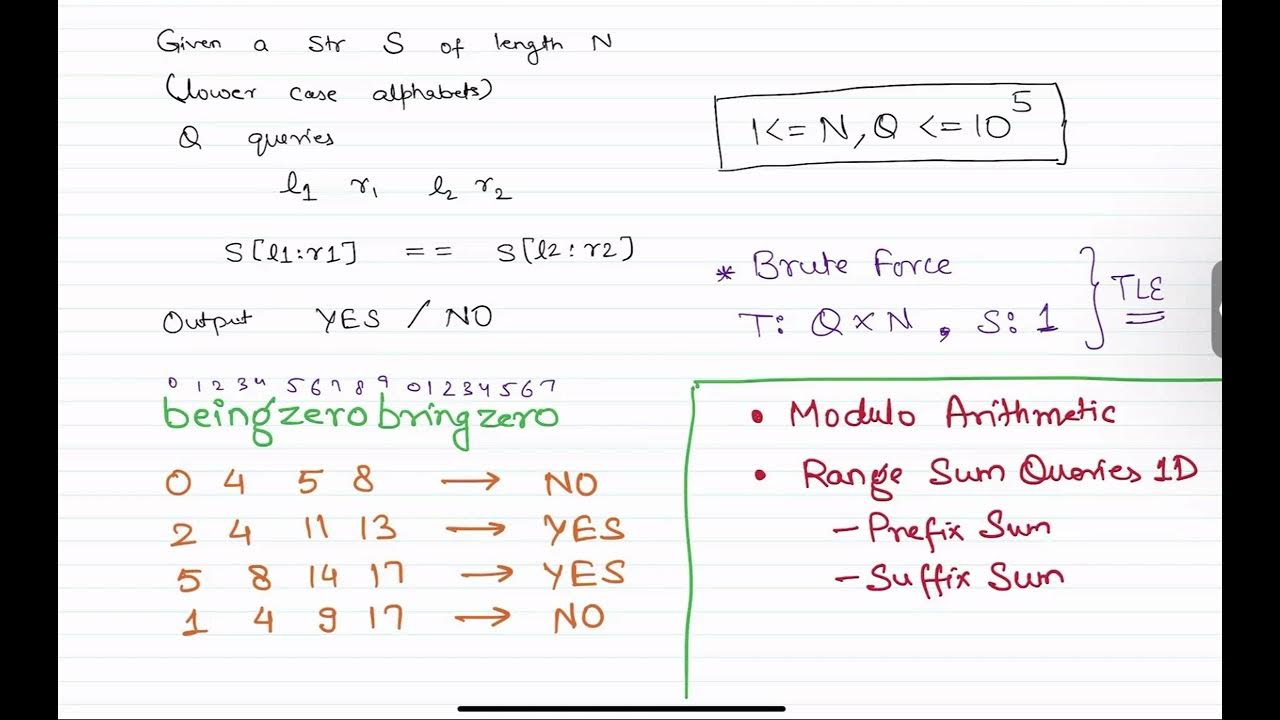 Given a str S of length N
(lower case alphabets)
Q queries
l1 r1 l2 r2
S[l1:r1] == S[l2:r2]
Output YES / NO
0 1 2 3 4 5 6 7 8 9 0 1 2 3 4 5 6 7
beingzerobringzero
0 4 5 8 → NO
2 4 11 13 → YES
5 8 14 17 → YES
1 4 9 17 → NO
1<=N,Q<=10^5
* Brute Force
T: Q×N, S: 1 } TLE
• Modulo Arithmetic
• Range Sum Queries 1D
- Prefix Sum
- Suffix Sum